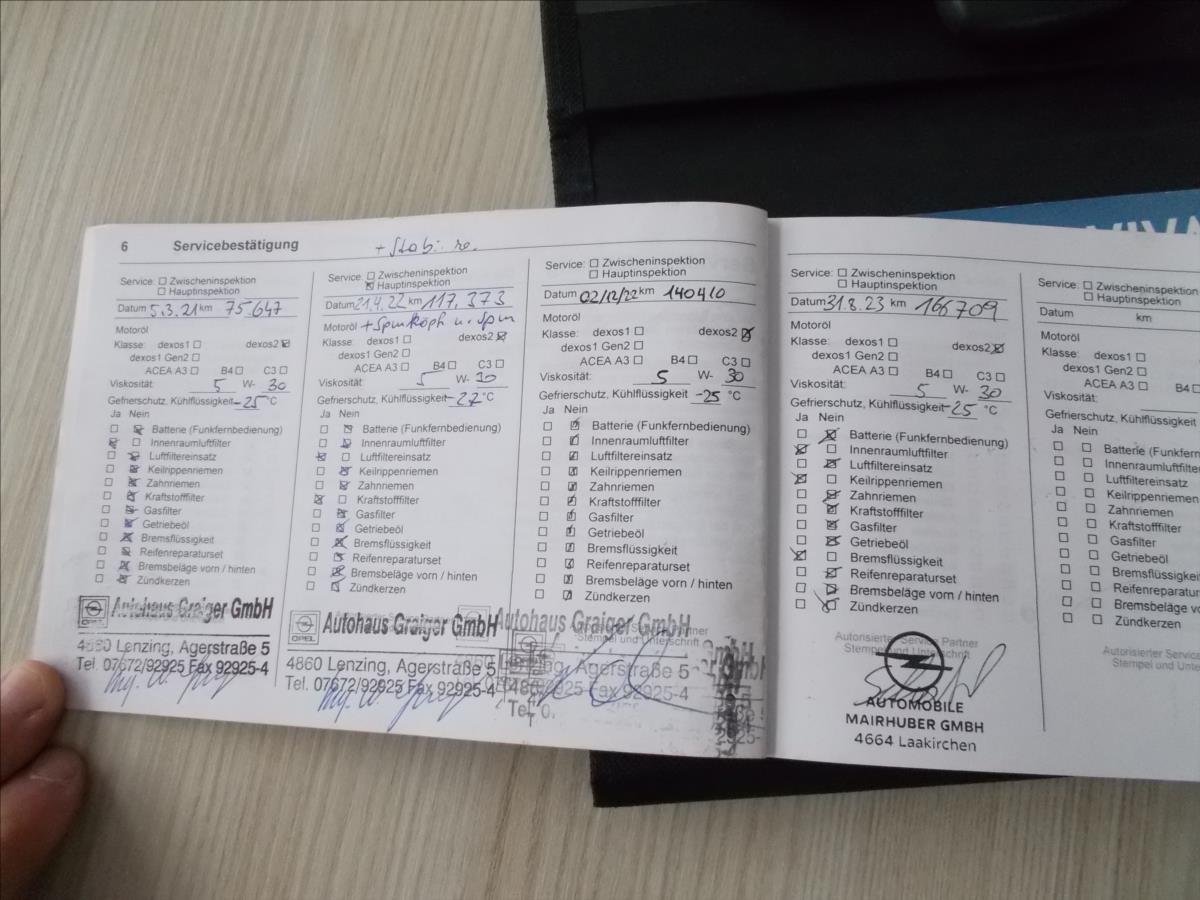 6 Servicebestätigung + Stab. re.
Service: Zwischeninspektion
Hauptinspektion
Datum 5.3.21 km 75.647
Motoröl
Klasse: dexos1 dexos2
dexos1 Gen2
ACEA A3 B4 C3
Viskosität: 5 W- 30
Gefrierschutz, Kühlflüssigkeit -25 °C
Ja Nein
Batterie (Funkfernbedienung)
Innenraumluftfilter
Luftfiltereinsatz
Keilrippenriemen
Zahnriemen
Kraftstofffilter
Gasfilter
Getriebeöl
Bremsflüssigkeit
Reifenreparaturset
Bremsbeläge vorn / hinten
Zündkerzen
OPEL
Autohaus Graiger GmbH
4860 Lenzing, Agerstraße 5
Tel. 07672/92925 Fax 92925-4
Service: Zwischeninspektion
Hauptinspektion
Datum 21.4.22 km 117.373
Motoröl + Spurköpfe u. Spur
Klasse: dexos1 dexos2
dexos1 Gen2
ACEA A3 B4 C3
Viskosität: 5 W- 30
Gefrierschutz, Kühlflüssigkeit -27 °C
Ja Nein
Batterie (Funkfernbedienung)
Innenraumluftfilter
Luftfiltereinsatz
Keilrippenriemen
Zahnriemen
Kraftstofffilter
Gasfilter
Getriebeöl
Bremsflüssigkeit
Reifenreparaturset
Bremsbeläge vorn / hinten
Zündkerzen
OPEL
Autohaus Graiger GmbH
4860 Lenzing, Agerstraße 5
Tel. 07672/92925 Fax 92925-4
Service: Zwischeninspektion
Hauptinspektion
Datum 02/12/22 km 140410
Motoröl
Klasse: dexos1 dexos2
dexos1 Gen2
ACEA A3 B4 C3
Viskosität: 5 W- 30
Gefrierschutz, Kühlflüssigkeit -25 °C
Ja Nein
Batterie (Funkfernbedienung)
Innenraumluftfilter
Luftfiltereinsatz
Keilrippenriemen
Zahnriemen
Kraftstofffilter
Gasfilter
Getriebeöl
Bremsflüssigkeit
Reifenreparaturset
Bremsbeläge vorn / hinten
Zündkerzen
Autohaus Graiger GmbH
Stempel und Unterschrift
Lenzing, Agerstraße 5
Service: Zwischeninspektion
Hauptinspektion
Datum 31.8.23 km 166709
Motoröl
Klasse: dexos1 dexos2
dexos1 Gen2
ACEA A3 B4 C3
Viskosität: 5 W- 30
Gefrierschutz, Kühlflüssigkeit -25 °C
Ja Nein
Batterie (Funkfernbedienung)
Innenraumluftfilter
Luftfiltereinsatz
Keilrippenriemen
Zahnriemen
Kraftstofffilter
Gasfilter
Getriebeöl
Bremsflüssigkeit
Reifenreparaturset
Bremsbeläge vorn / hinten
Zündkerzen
Autorisierter Service Partner
Stempel und Unterschrift
AUTOMOBILE
MAIRHUBER GMBH
4664 Laakirchen
Service: Zwischeninspektion
Hauptinspektion
Datum km
Motoröl
Klasse: dexos1
dexos1 Gen2
ACEA A3 B4
Viskosität:
Gefrierschutz, Kühlflüssigkeit
Ja Nein
Batterie (Funkfern
Innenraumluftfilter
Luftfiltereinsatz
Keilrippenriemen
Zahnriemen
Kraftstofffilter
Gasfilter
Getriebeöl
Bremsflüssigkei
Reifenreparatur
Bremsbeläge vo
Zündkerzen
Autorisierter Service
Stempel und Unte